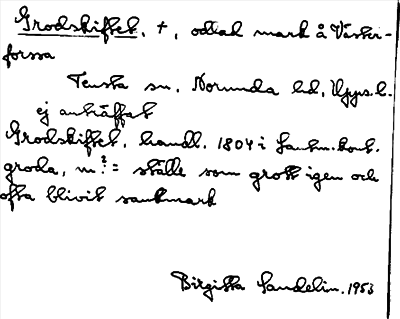 Grodskiftet, +, odlad mark å Väster-
forssa
Tensta sn. Norunda hd, Upps. l.
ej anträffat
Grodskiftet, handl. 1804 i Lantm.kont.
groda, m ?: = ställe som grott igen och
ofta blivit sankmark
Birgitta Sandelin. 1953